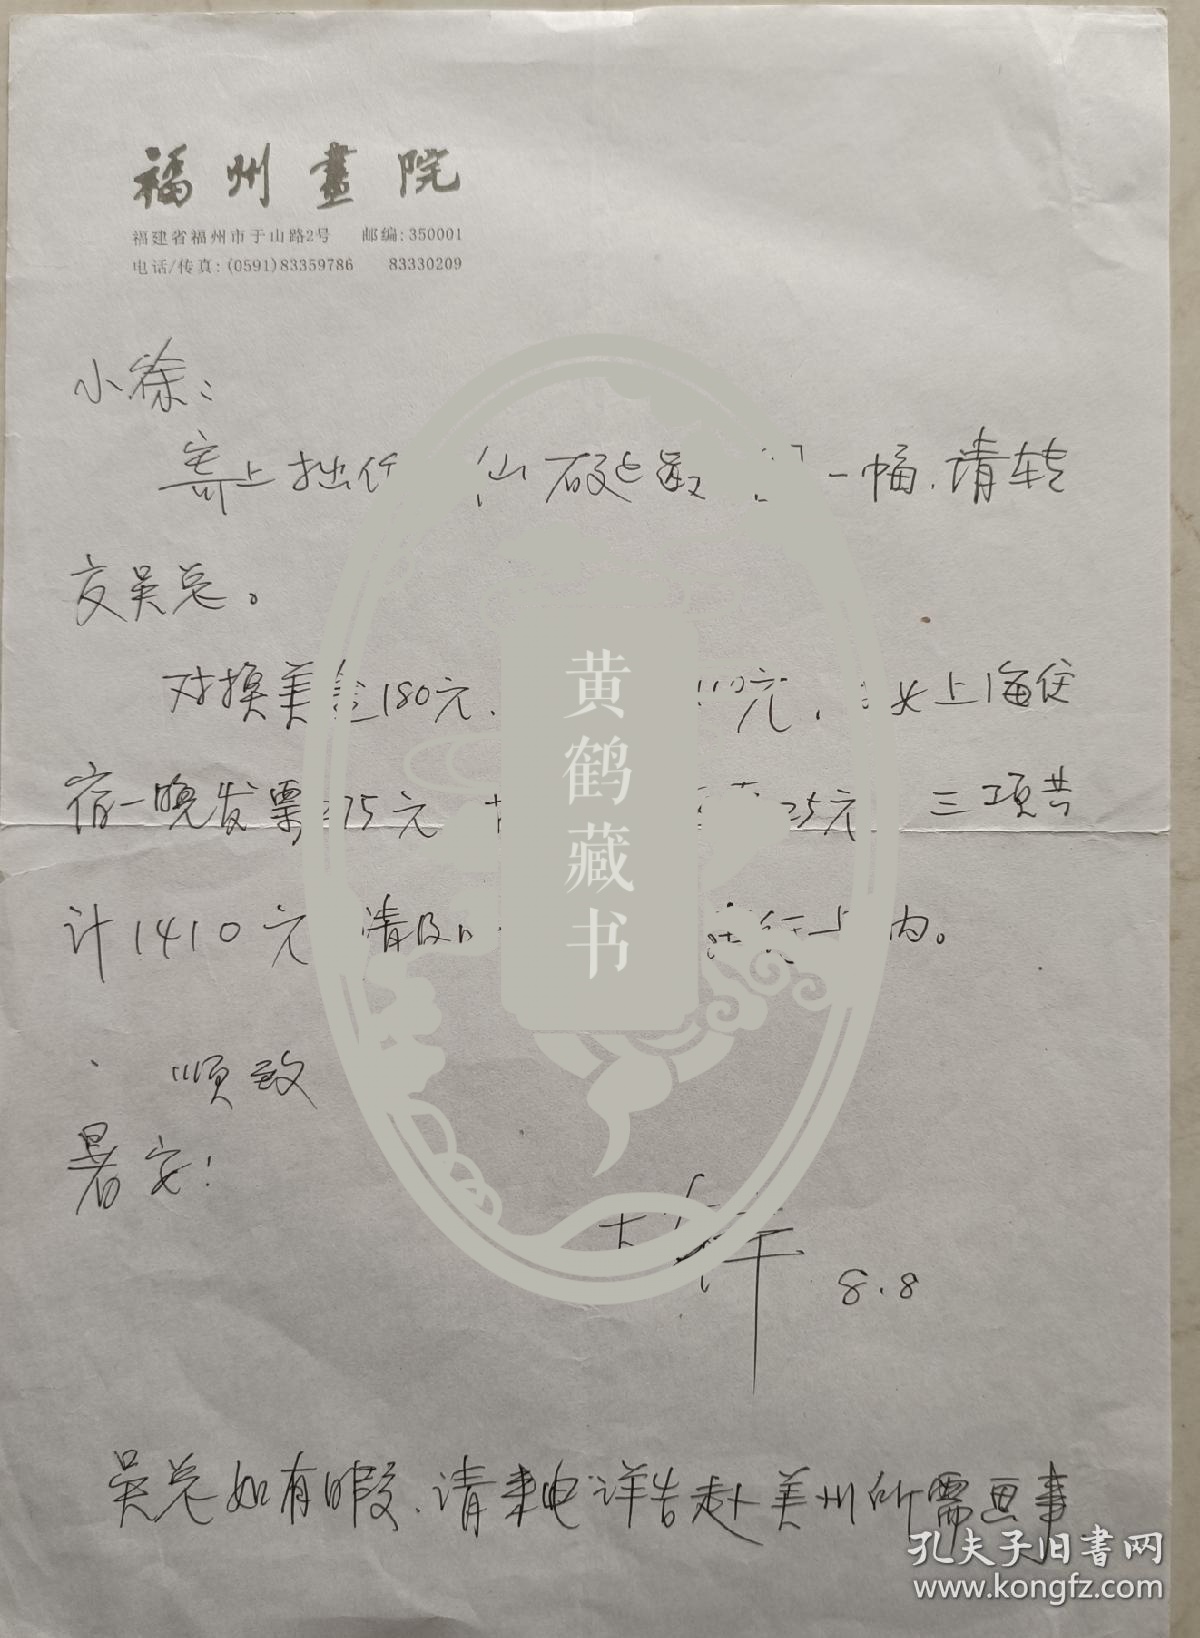 福州畫院
福建省福州市于山路2号 邮编:350001
电话/传真:(0591)83359786 83330209
小徐:
寄上拙作 山 一幅,请转
交吴总。
对换美金180元, 110元, 上海住
宿一晚发票275元 35元 三项共
计1410元 请 内。
顺致
暑安!
8.8
吴总如有暇,请来电详告赴美州所需画事
黄鹤藏书
孔夫子旧书网
www.kongfz.com